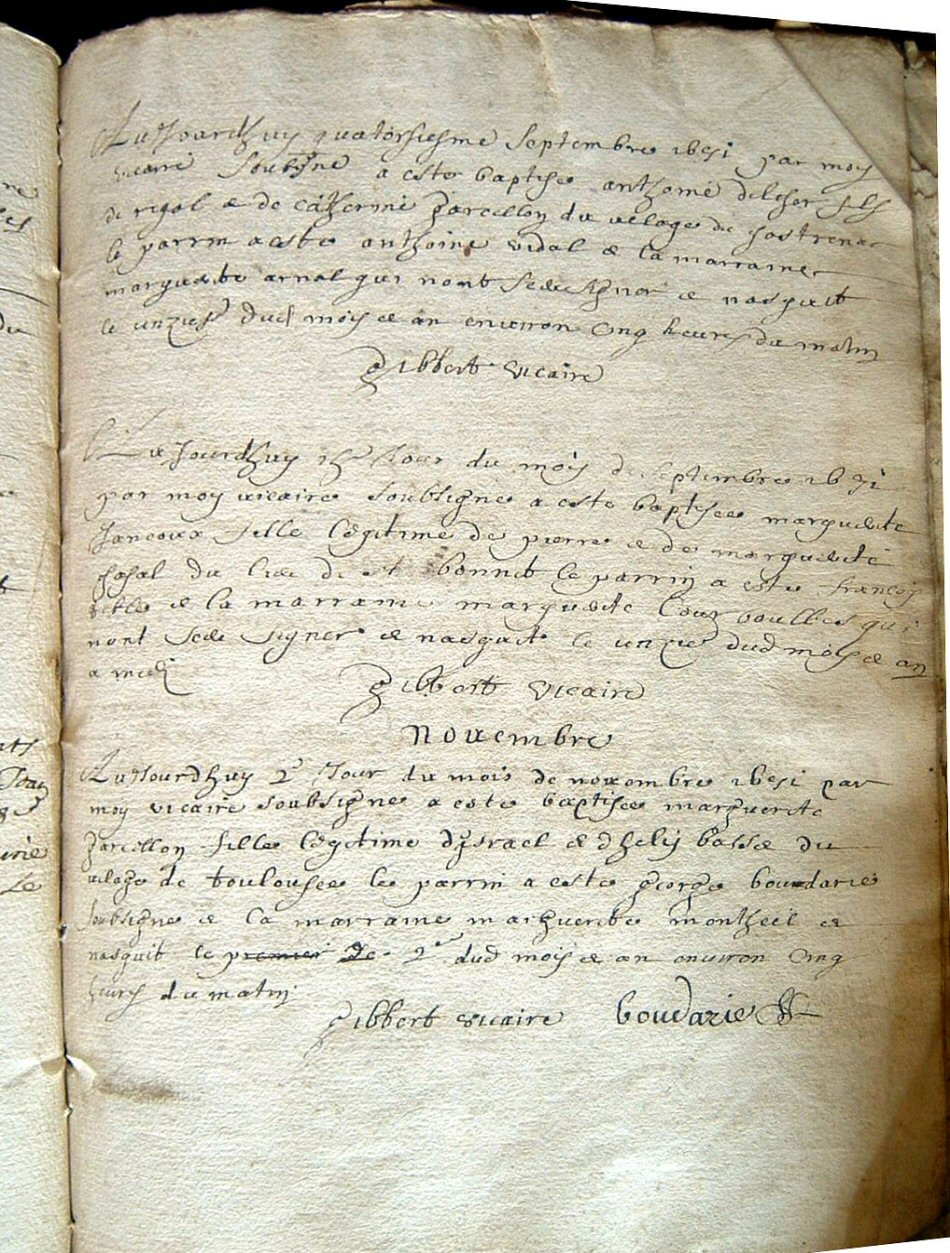 Aujourdhuy quatorsiesme septembre 1691 par moy
vicaire soubsigne a ester baptise anthoine delhor fils
de rigal & de catherine parcellon du vilage de
le parrin a este anthoine vidal & la marraine
marguerite arnal qui nont sceu signer & nasquit
le unzies dud mois & an environ cinq heures du matin
gibbert vicaire
Aujourdhuy jour du mois de septembre 1691
par moy vicaire soubsigne a este baptisee marguerite
fille legitime de pierre & de marguerite
du lieu de st bonnet le parrin a este francois
& la marraine marguerite qui
nont sceu signer & nasquit le unzies dud mois & an
a midi
gibbert vicaire
Novembre
Aujourdhuy 2e jour du mois de novembre 1691 par
moy vicaire soubsigne a este baptisee marguerite
parcellon fille legitime disrael & dhelis basse du
vilage de toulousee le parrin a este george boudarie
soubsigne & la marraine marguerite montheil &
nasquit le premier de 2e dud mois & an environ cinq
heures du matin
gibbert vicaire boudarie